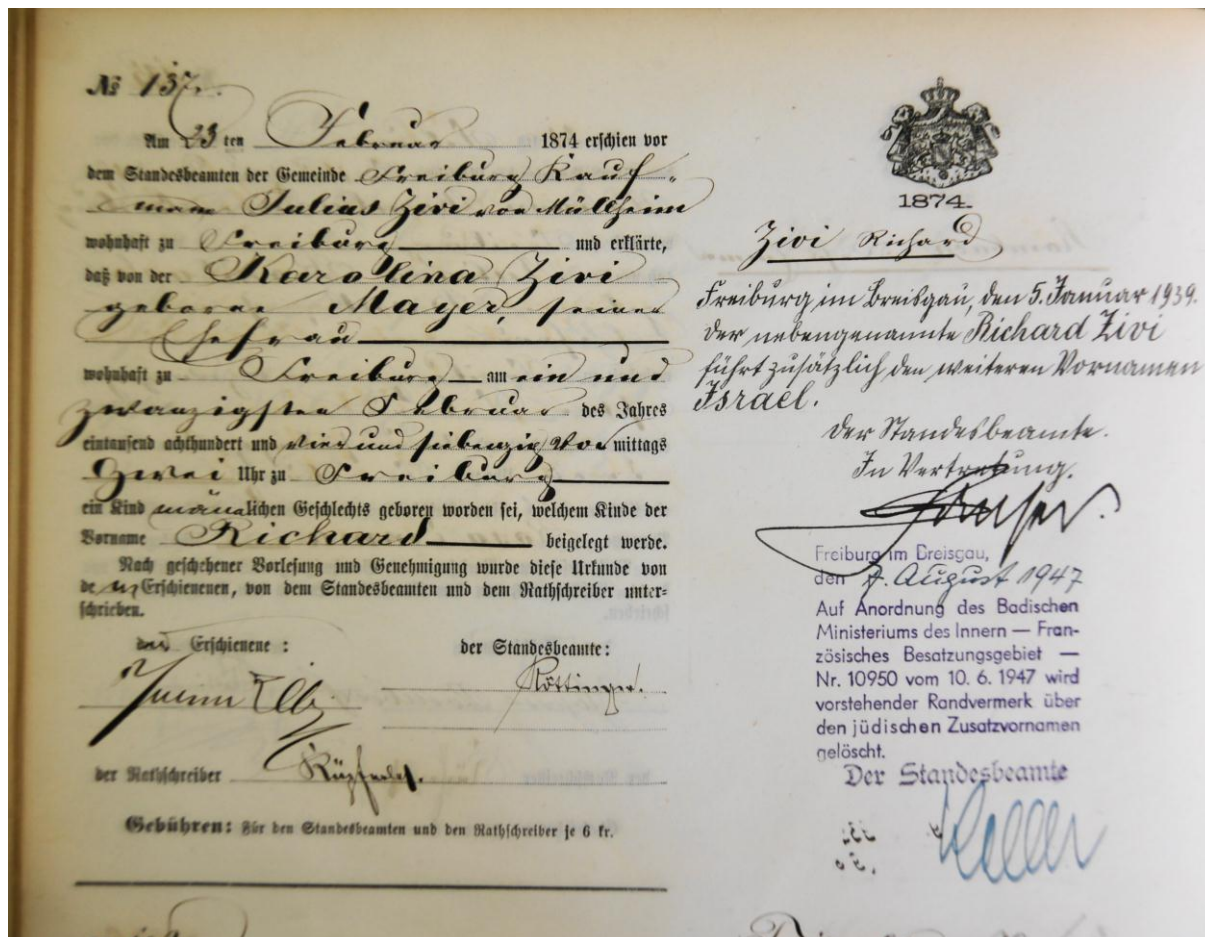 № 137.
Am 23ten Februar 1874 erschien vor
dem Standesbeamten der Gemeinde Freiburg Kauf-
mann Julius Zivi von Müllheim
wohnhaft zu Freiburg und erklärte,
daß von der Karolina Zivi
geborne Mayer, seiner
Ehefrau
wohnhaft zu Freiburg am ein und
zwanzigsten Februar des Jahres
eintausend achthundert und vier und siebenzig Vormittags
Zwei Uhr zu Freiburg
ein Kind männlichen Geschlechts geboren worden sei, welchem Kinde der
Vorname Richard beigelegt werde.
Nach geschehener Vorlesung und Genehmigung wurde diese Urkunde von
dem Erschienenen, von dem Standesbeamten und dem Rathschreiber unter-
schrieben.
der Erschienene :
der Standesbeamte :
der Rathschreiber
Gebühren: Für den Standesbeamten und den Rathschreiber je 6 kr.
1874.
Zivi Richard
Freiburg im Breisgau, den 5. Januar 1939.
Der nebengenannte Richard Zivi
führt zusätzlich den weiteren Vornamen
Israel.
Der Standesbeamte.
In Vertretung.
Freiburg im Breisgau,
den August 1947
Auf Anordnung des Badischen
Ministeriums des Innern — Fran-
zösisches Besatzungsgebiet —
Nr. 10950 vom 10. 6. 1947 wird
vorstehender Randvermerk über
den jüdischen Zusatzvornamen
gelöscht.
Der Standesbeamte